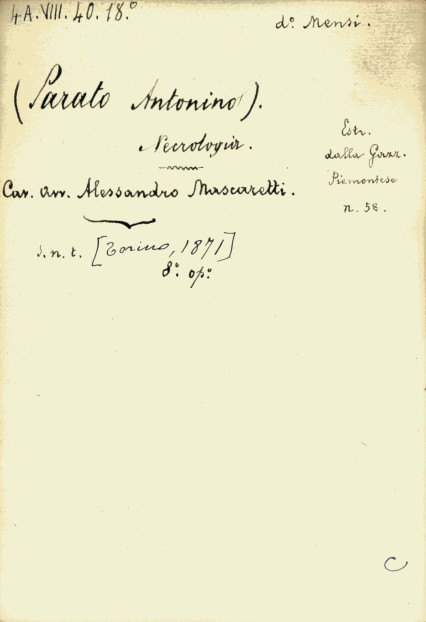 4.A.VIII.40.18.°
d.° Mensi.
(Parato Antonino).
Necrologia.
Cav. avv. Alessandro Mascaretti.
Estr.
dalla Gazz.
Piemontese
n. 58.
s. n. t. [Torino, 1871]
8.° op.°
C